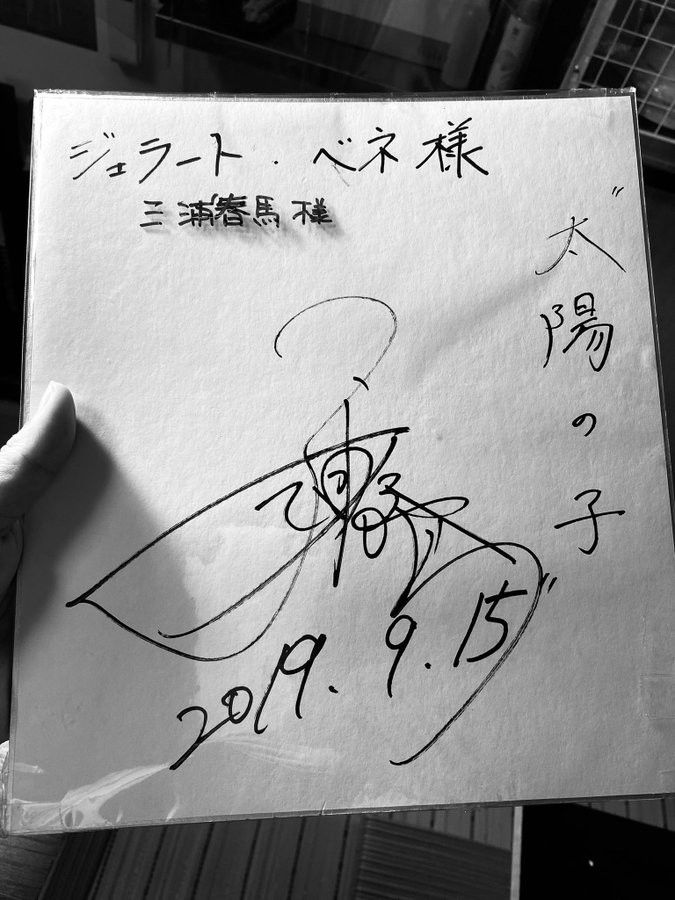 ジェラート・ベネ様
三浦春馬様
"太陽の子"
2019.9.15